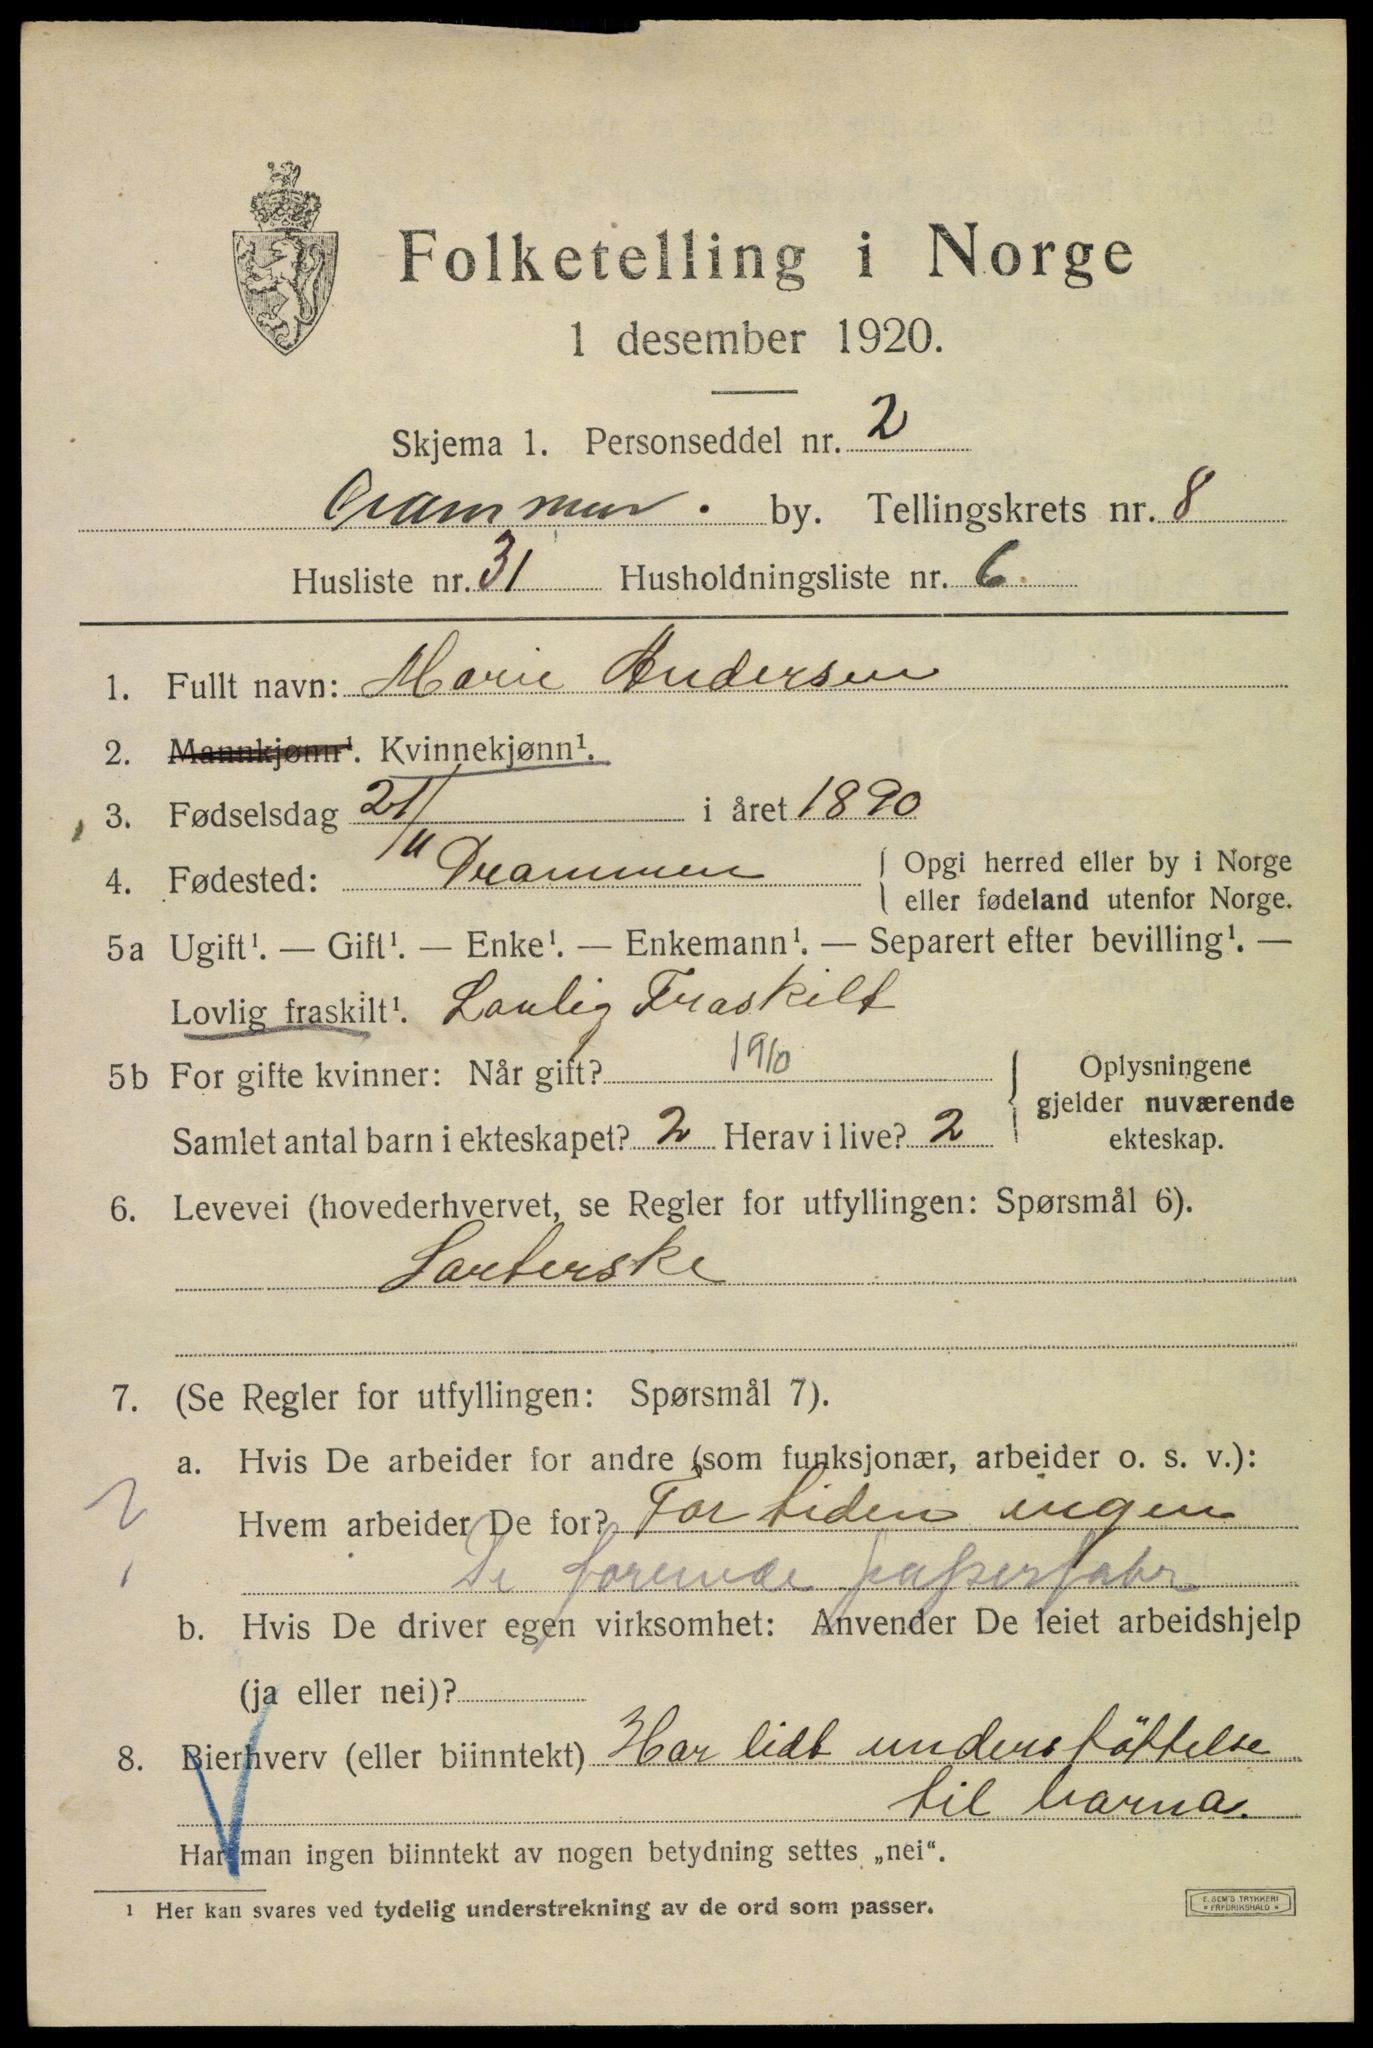 Folketelling i Norge
1 desember 1920.
Skjema 1. Personseddel nr. 2
Drammen. by. Tellingskrets nr. 8
Husliste nr. 31 Husholdningsliste nr. 6.
1. Fullt navn: Marie Andersen
2. Mannkjønn¹. Kvinnekjønn¹.
3. Fødselsdag 21/11 i året 1890
4. Fødested: Drammen { Opgi herred eller by i Norge
eller fødeland utenfor Norge.
5a Ugift¹. — Gift¹. — Enke¹. — Enkemann¹. — Separert efter bevilling¹. —
Lovlig fraskilt¹. Lovlig Fraskilt
5b For gifte kvinner: Når gift? 1910
Samlet antal barn i ekteskapet? 2 Herav i live? 2
} Oplysningene
gjelder nuværende
ekteskap.
6. Levevei (hovederhvervet, se Regler for utfyllingen: Spørsmål 6).
Sorterske
7. (Se Regler for utfyllingen: Spørsmål 7).
a. Hvis De arbeider for andre (som funksjonær, arbeider o. s. v.):
Hvem arbeider De for? For tiden ingen
De forenede papirfabr
b. Hvis De driver egen virksomhet: Anvender De leiet arbeidshjelp
(ja eller nei)?
8. Bierhverv (eller biinntekt) Har lidt understöttelse
til barna.
Har man ingen biinntekt av nogen betydning settes „nei“.
¹ Her kan svares ved tydelig understrekning av de ord som passer.
E. SEM'S TRYKKERI
* FREDRIKSHALD *